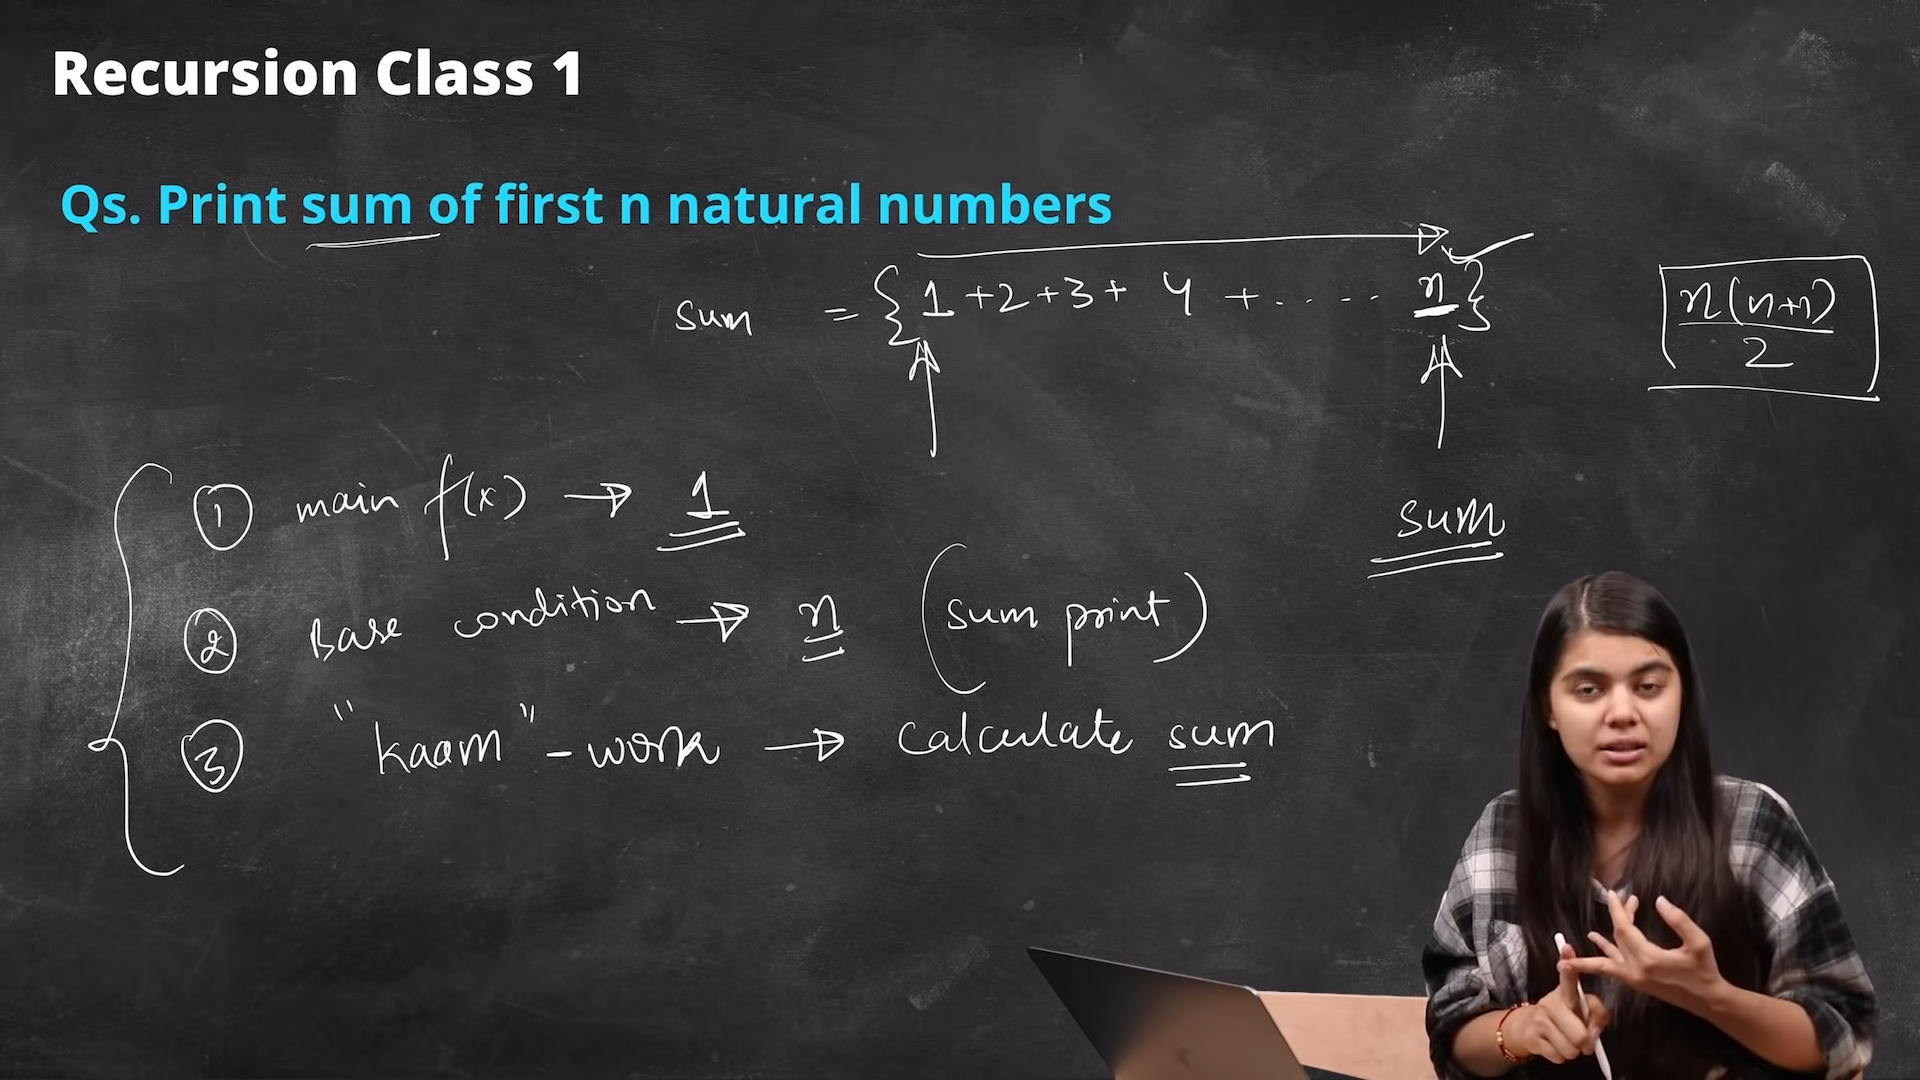 Recursion Class 1
Qs. Print sum of first n natural numbers
sum = {1 +2+3+ 4 +..... n}
n(n+1)
2
① main f(x) → 1
sum
② Base condition → n (sum print)
③ "kaam" - work → calculate sum